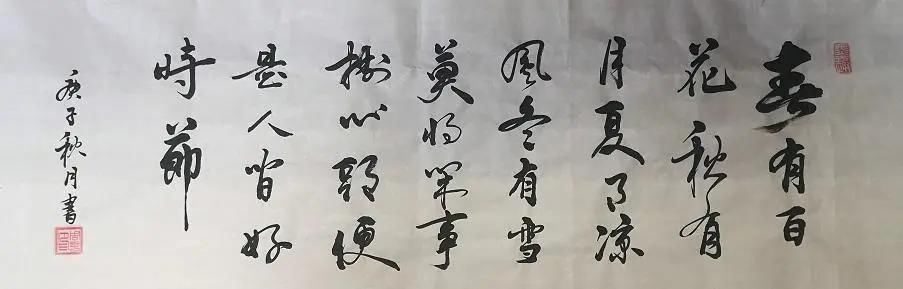 春有百
花秋有
月夏有凉
風冬有雪
莫将閑事
掛心頭便
是人間好
時節
庚子秋月書